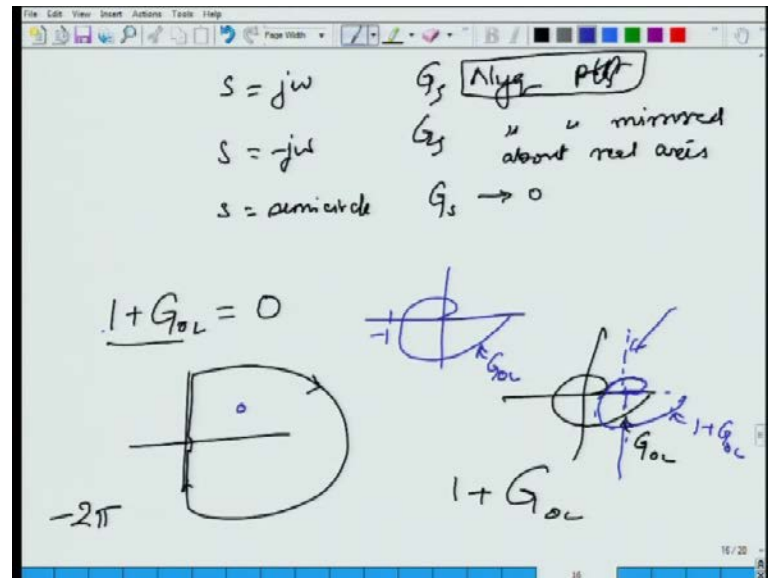 File Edit View Insert Actions Tools Help
Page Width
s = jω G_s Nyq plot
s = -jω G_s " " mirrored
about real axis
s = semicircle G_s → 0
1 + G_OL = 0
-1
G_OL
1 + G_OL
G_OL
-2π
1 + G_OL
16 / 20
16